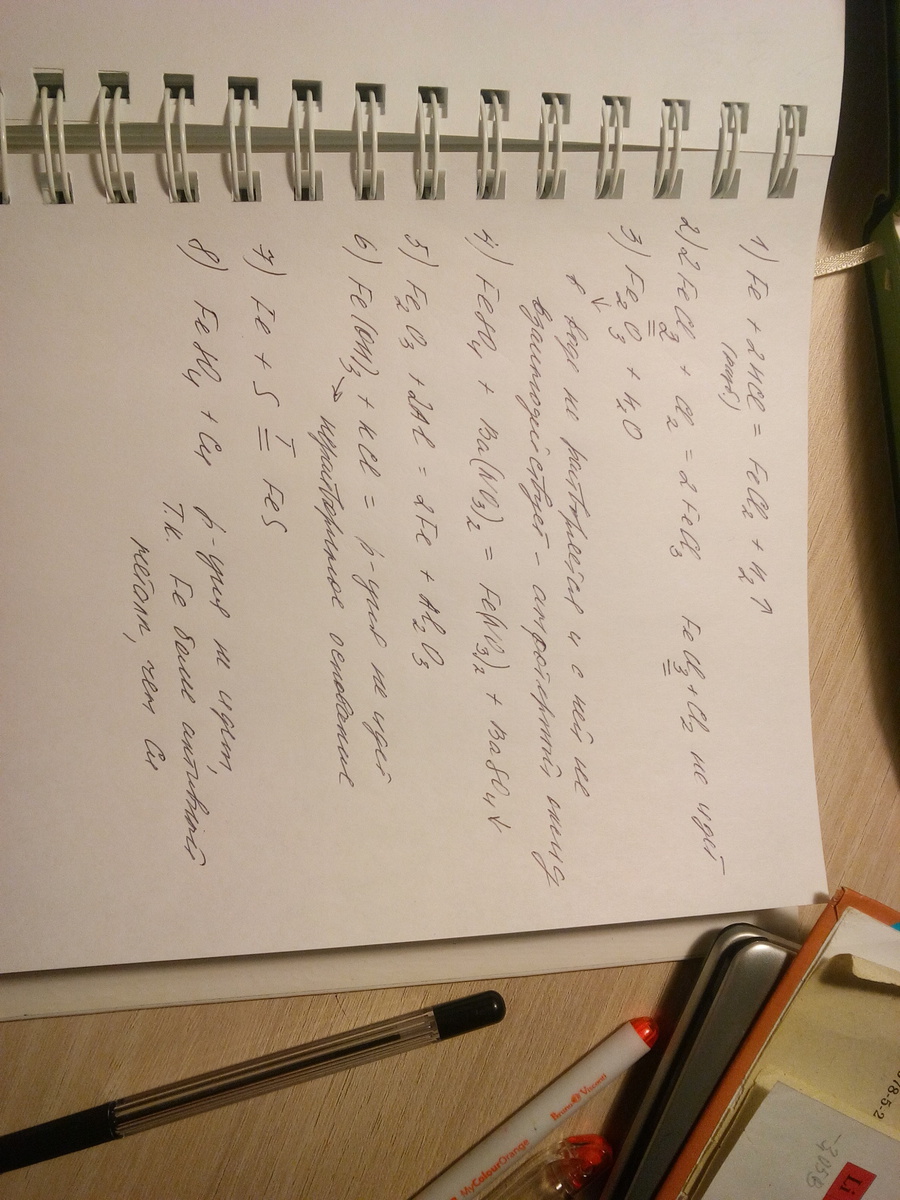 1) Fe + 2HCl = FeCl2 + H2↑
2) 2FeCl2 + Cl2 = 2FeCl3 FeCl3 + Cl2 не идёт
3) Fe2O3 + H2O
в воде не растворяется и с ней не
взаимодействует - амфотерный оксид
4) FeSO4 + Ba(NO3)2 = Fe(NO3)2 + BaSO4↓
5) Fe2O3 + 2Al = 2Fe + Al2O3
6) Fe(OH)3 + KCl = р-ция не идёт
нерастворимое основание
7) Fe + S = FeS
T
8) FeSO4 + Cu р-ция не идет,
т.к. Fe более активный
металл, чем Cu
Bruno Visconti
MyColourOrange
978-5-2
Li